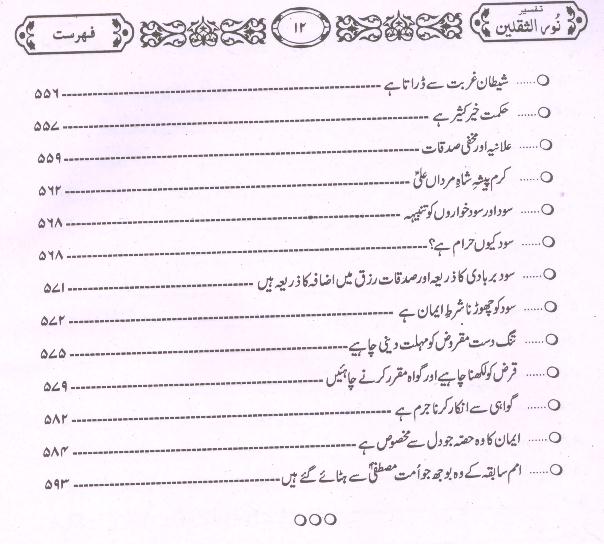 تفسیر
نُور الثقلین
۱۲
فہرست
شیطان غربت سے ڈراتا ہے ۵۵۶
حکمت خیر کثیر ہے ۵۵۷
علانیہ اور مخفی صدقات ۵۵۹
کرم پیشہ شاہِ مرداں علیؑ ۵۶۲
سود اور سود خواروں کو تنبیہہ ۵۶۸
سود کیوں حرام ہے؟ ۵۶۸
سود بربادی کا ذریعہ اور صدقات رزق میں اضافہ کا ذریعہ ہیں ۵۷۱
سود کو چھوڑنا شرطِ ایمان ہے ۵۷۲
تنگ دست مقروض کو مہلت دینی چاہیے ۵۷۵
قرض کو لکھنا چاہیے اور گواہ مقرر کرنے چاہئیں ۵۷۹
گواہی سے انکار کرنا جرم ہے ۵۸۲
ایمان کا وہ حصہ جو دل سے مخصوص ہے ۵۸۴
امم سابقہ کے وہ بوجھ جو اُمت مصطفیٰؐ سے ہٹائے گئے ہیں ۵۹۳